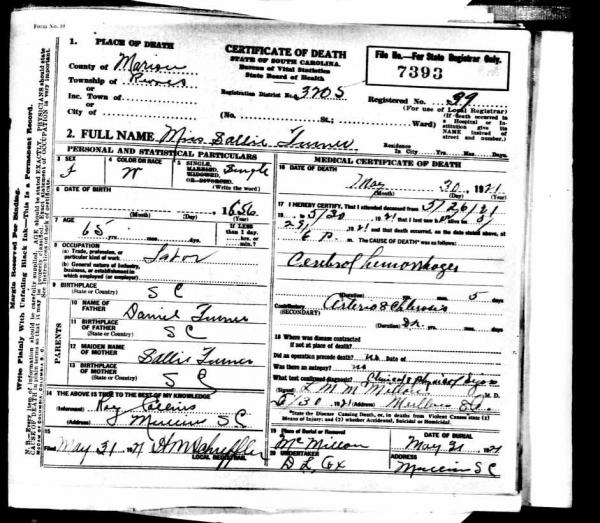 Form No. 10
1. PLACE OF DEATH
County of Marion
Township of
or
Inc. Town of
or
City of
CERTIFICATE OF DEATH
STATE OF SOUTH CAROLINA.
Bureau of Vital Statistics
State Board of Health
Registration District No. 3705
(No. St.; Ward)
File No.—For State Registrar Only.
7393
Registered No. 99
(For use of Local Registrar)
(If death occurred in a Hospital or Institution give its NAME instead of street and number.)
2. FULL NAME Miss Sallie Turner
Residence In City Yrs. Mos. Days.
PERSONAL AND STATISTICAL PARTICULARS
3 SEX
F
4 COLOR OR RACE
W
5 SINGLE, MARRIED, WIDOWED, OR DIVORCED. Single
(Write the word)
6 DATE OF BIRTH
1856
(Month) (Day) (Year)
7 AGE
65 yrs. mos. days
If LESS than 1 day, hrs. or min.?
8 OCCUPATION
(a) Trade, profession, or particular kind of work Labor
(b) General nature of industry, business, or establishment in which employed (or employer)
9 BIRTHPLACE
(State or Country) S C
PARENTS
10 NAME OF FATHER Daniel Turner
11 BIRTHPLACE OF FATHER
(State or Country) S C
12 MAIDEN NAME OF MOTHER Sallie Turner
13 BIRTHPLACE OF MOTHER
(State or Country) S C
14 THE ABOVE IS TRUE TO THE BEST OF MY KNOWLEDGE
(Informant) Roy
(Address) S C
15
Filed May 31 1921
LOCAL REGISTRAR.
MEDICAL CERTIFICATE OF DEATH
16 DATE OF DEATH
May 30 1921
(Month) (Day) (Year)
17 I HEREBY CERTIFY, That I attended deceased from 5/26/21
to 5/30 1921 that I last saw h
and that death occurred, on the date stated above, at
6 P m. The CAUSE OF DEATH* was as follows:
Cerebral hemorrhages
(Duration) yrs. mos. 5 days
Contributory
(SECONDARY)
(Duration) yrs. mos. days
18 Where was disease contracted
if not at place of death?
Did an operation precede death? no Date of
Was there an autopsy? no
What test confirmed diagnosis?
(Signed) M. D.
5/30 1921 (Address) S C
*State the Disease Causing Death, or, in deaths from Violent Causes state (1) Means of Injury; and (2) whether Accidental, Suicidal or Homicidal.
19 Place of Burial or Removal
McMillan
DATE OF BURIAL
May 31 1921
20 UNDERTAKER
D L Cox
Address
S C
Margin Reserved For Binding.
Write Plainly With Unfading Black Ink—This Is a Permanent Record.